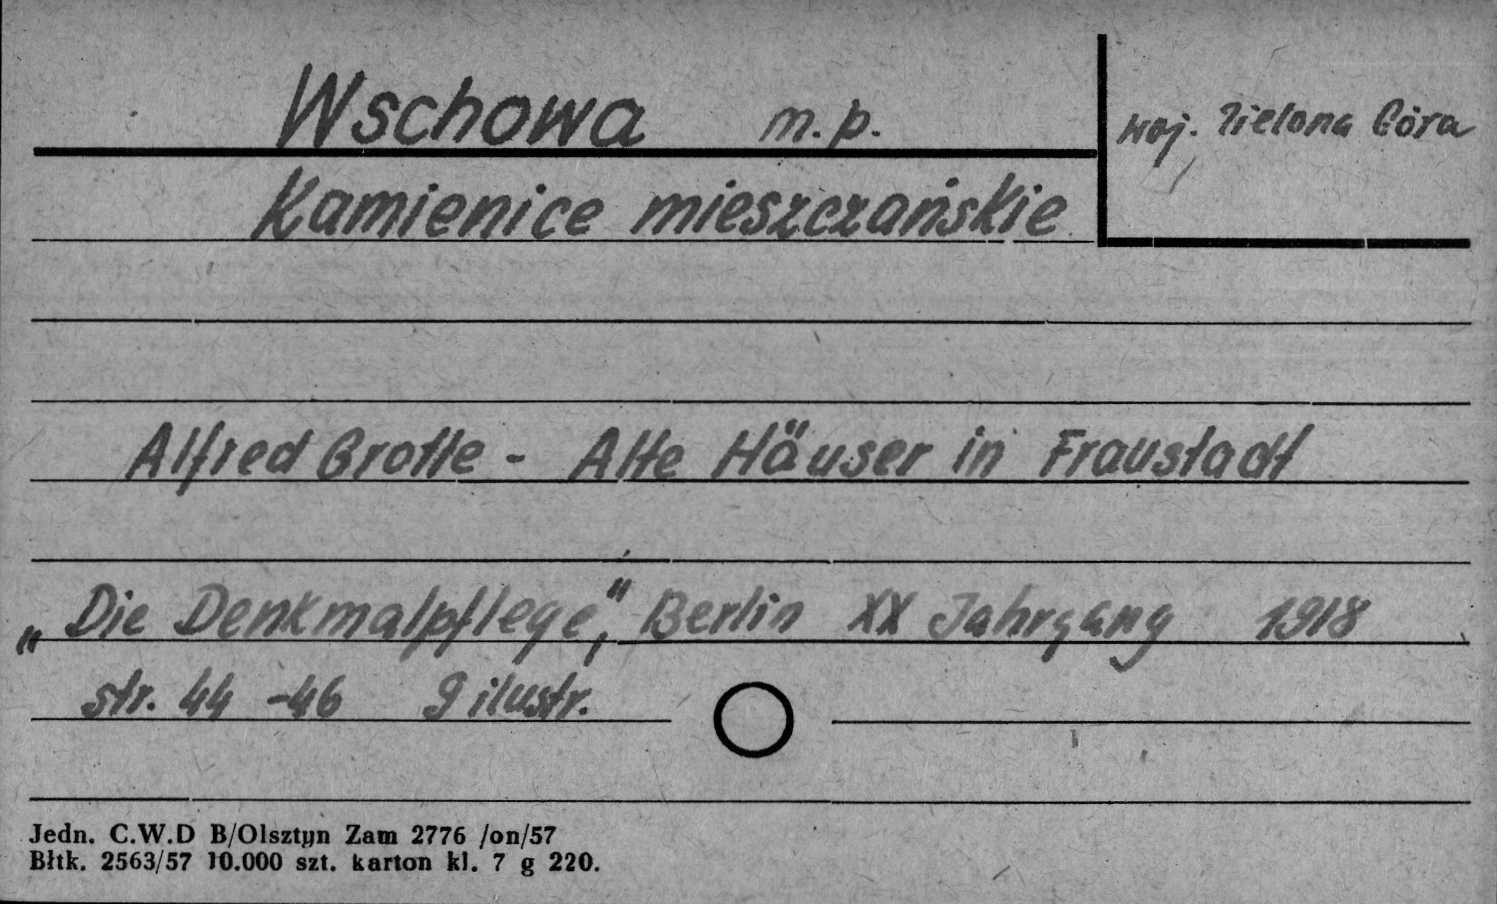 Wschowa m.p.
woj. Zielona Góra
Kamienice mieszczańskie
Alfred Grotte - Alte Häuser in Fraustadt
„Die Denkmalpflege," Berlin XX Jahrgang 1918
str. 44 -46 9 ilustr.
Jedn. C.W.D B/Olsztyn Zam 2776 /on/57
Błtk. 2563/57 10.000 szt. karton kl. 7 g 220.